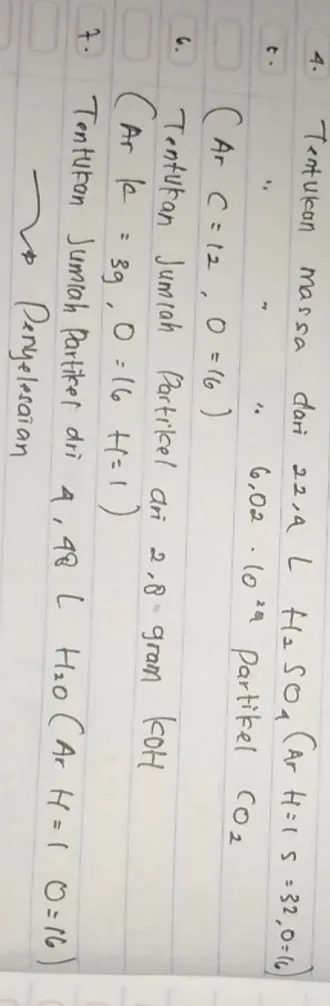 4. Tentukan massa dari 22,4 L H₂SO₄ (Ar H=1 S=32, O=16)
5. " " " 6,02 · 10²⁴ Partikel CO₂
(Ar C=12, O=16)
6. Tentukan Jumlah Partikel dri 2,8 gram KOH
(Ar K = 39, O=16 H=1)
7. Tentukan Jumlah Partikel dri 4,48 L H₂O (Ar H=1 O=16)
→ Penyelesaian